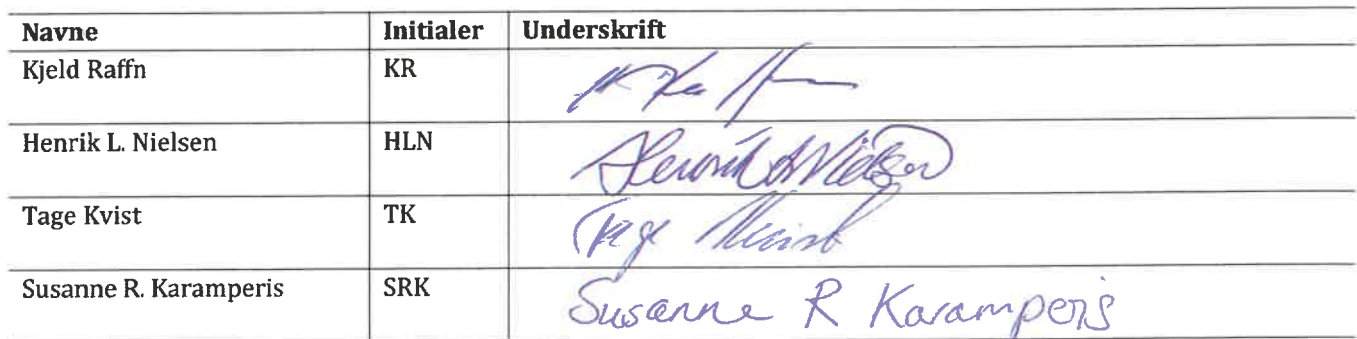 Navne Initialer Underskrift
Kjeld Raffn KR
Henrik L. Nielsen HLN Henrik L Nielsen
Tage Kvist TK Tage Kvist
Susanne R. Karamperis SRK Susanne R Karamperis